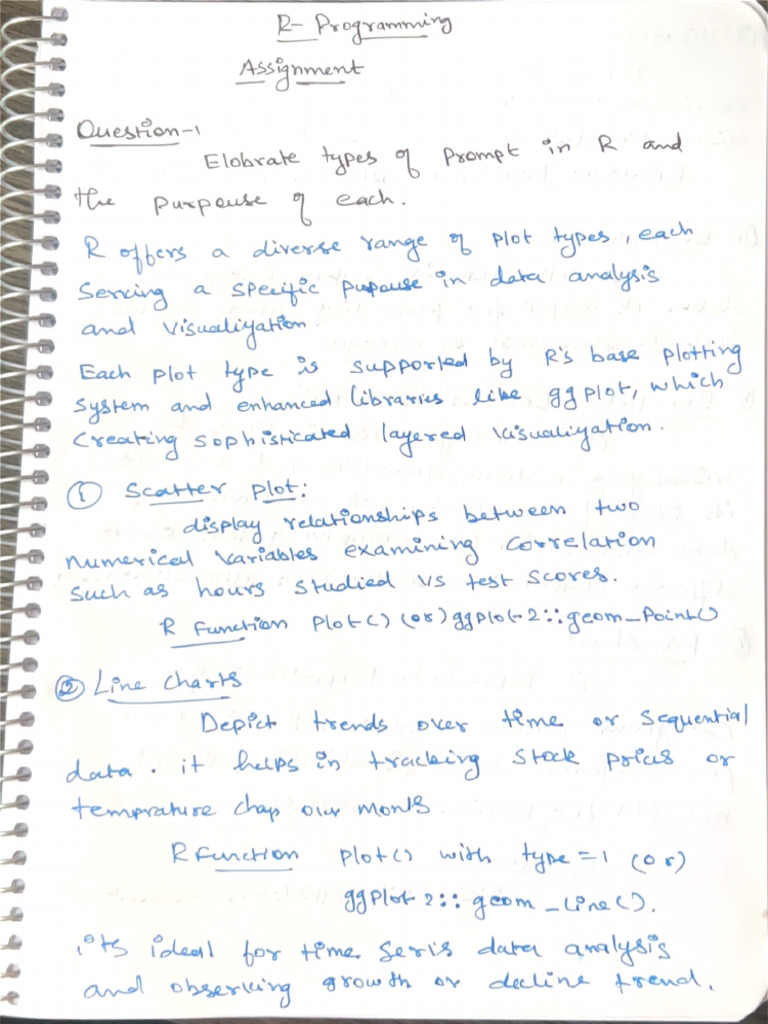 R- Programming
Assignment
Question-1
Elobrate types of Prompt in R and
the purpouse of each.
R offers a diverse range of plot types, each
Serving a specific pupouse in data analysis
and visualiyation.
Each plot type is supported by R's base plotting
system and enhanced libraries like ggplot, which
Creating sophisticated layered visualiyation.
① Scatter plot:
display relationships between two
numerical variables examining correlation
such as hours studied vs test scores.
R Function Plot() (or) ggplot-2::geom_Point()
② Line Charts
Depict trends over time or sequential
data. it helps in tracking stock prices or
temprature over
R Function plot() with type=1 (or)
ggplot 2::geom_Line().
its ideal for time seris data analysis
and observing growth or decline trend.